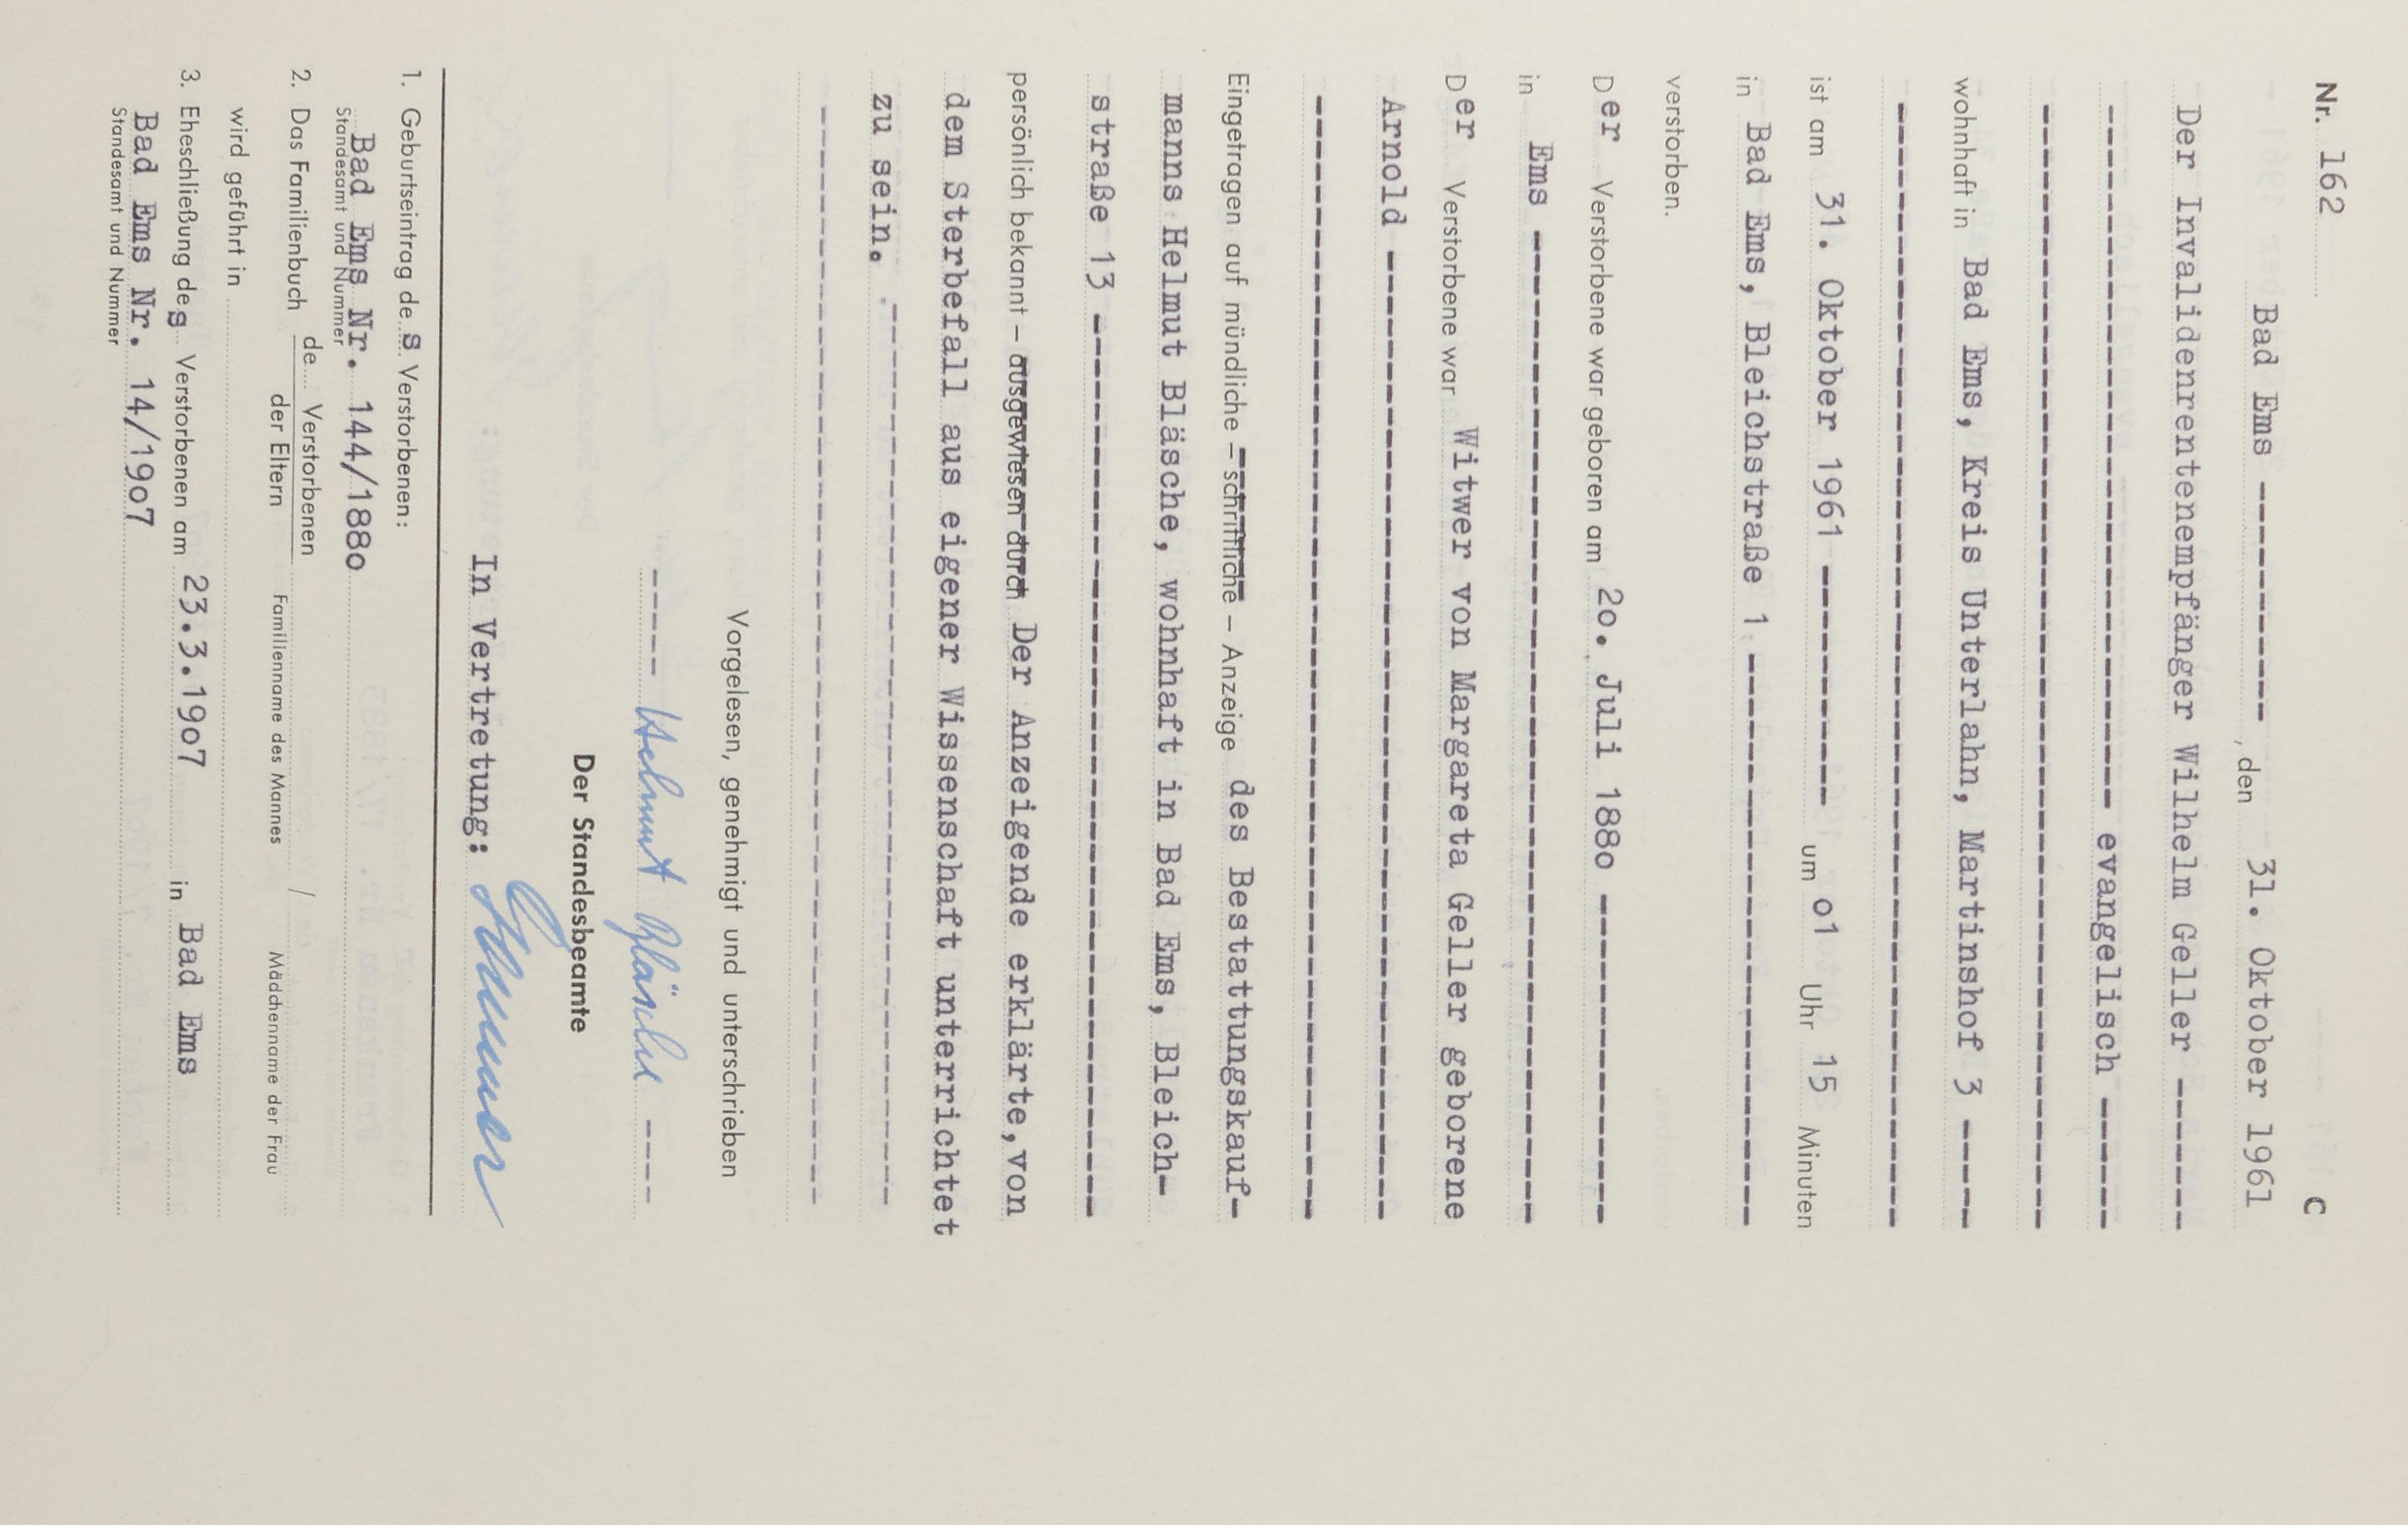 Nr. 162 C
Bad Ems ----------, den 31. Oktober 1961
Der Invalidenrentenempfänger Wilhelm Geller ------
------------------------------ evangelisch -----
wohnhaft in Bad Ems, Kreis Unterlahn, Martinshof 3 -----
ist am 31. Oktober 1961 ---------- um o1 Uhr 15 Minuten
in Bad Ems, Bleichstraße 1 ------------------------
verstorben.
Der Verstorbene war geboren am 2o. Juli 188o --------------
in Ems ------------------------------------------
Der Verstorbene war Witwer von Margareta Geller geborene
Arnold -----------------------------------------
Eingetragen auf mündliche – schriftliche – Anzeige des Bestattungskauf-
manns Helmut Bläsche, wohnhaft in Bad Ems, Bleich-
straße 13 --------------------------------------
persönlich bekannt – ausgewiesen durch Der Anzeigende erklärte, von
dem Sterbefall aus eigener Wissenschaft unterrichtet
zu sein. --------------------------------------
Vorgelesen, genehmigt und unterschrieben
----- Helmut Bläsche ----
Der Standesbeamte
In Vertretung:
1. Geburtseintrag des Verstorbenen:
Bad Ems Nr. 144/188o
Standesamt und Nummer
2. Das Familienbuch de... Verstorbenen /
der Eltern Familienname des Mannes Mädchenname der Frau
wird geführt in
3. Eheschließung des Verstorbenen am 23.3.19o7 in Bad Ems
Bad Ems Nr. 14/19o7
Standesamt und Nummer